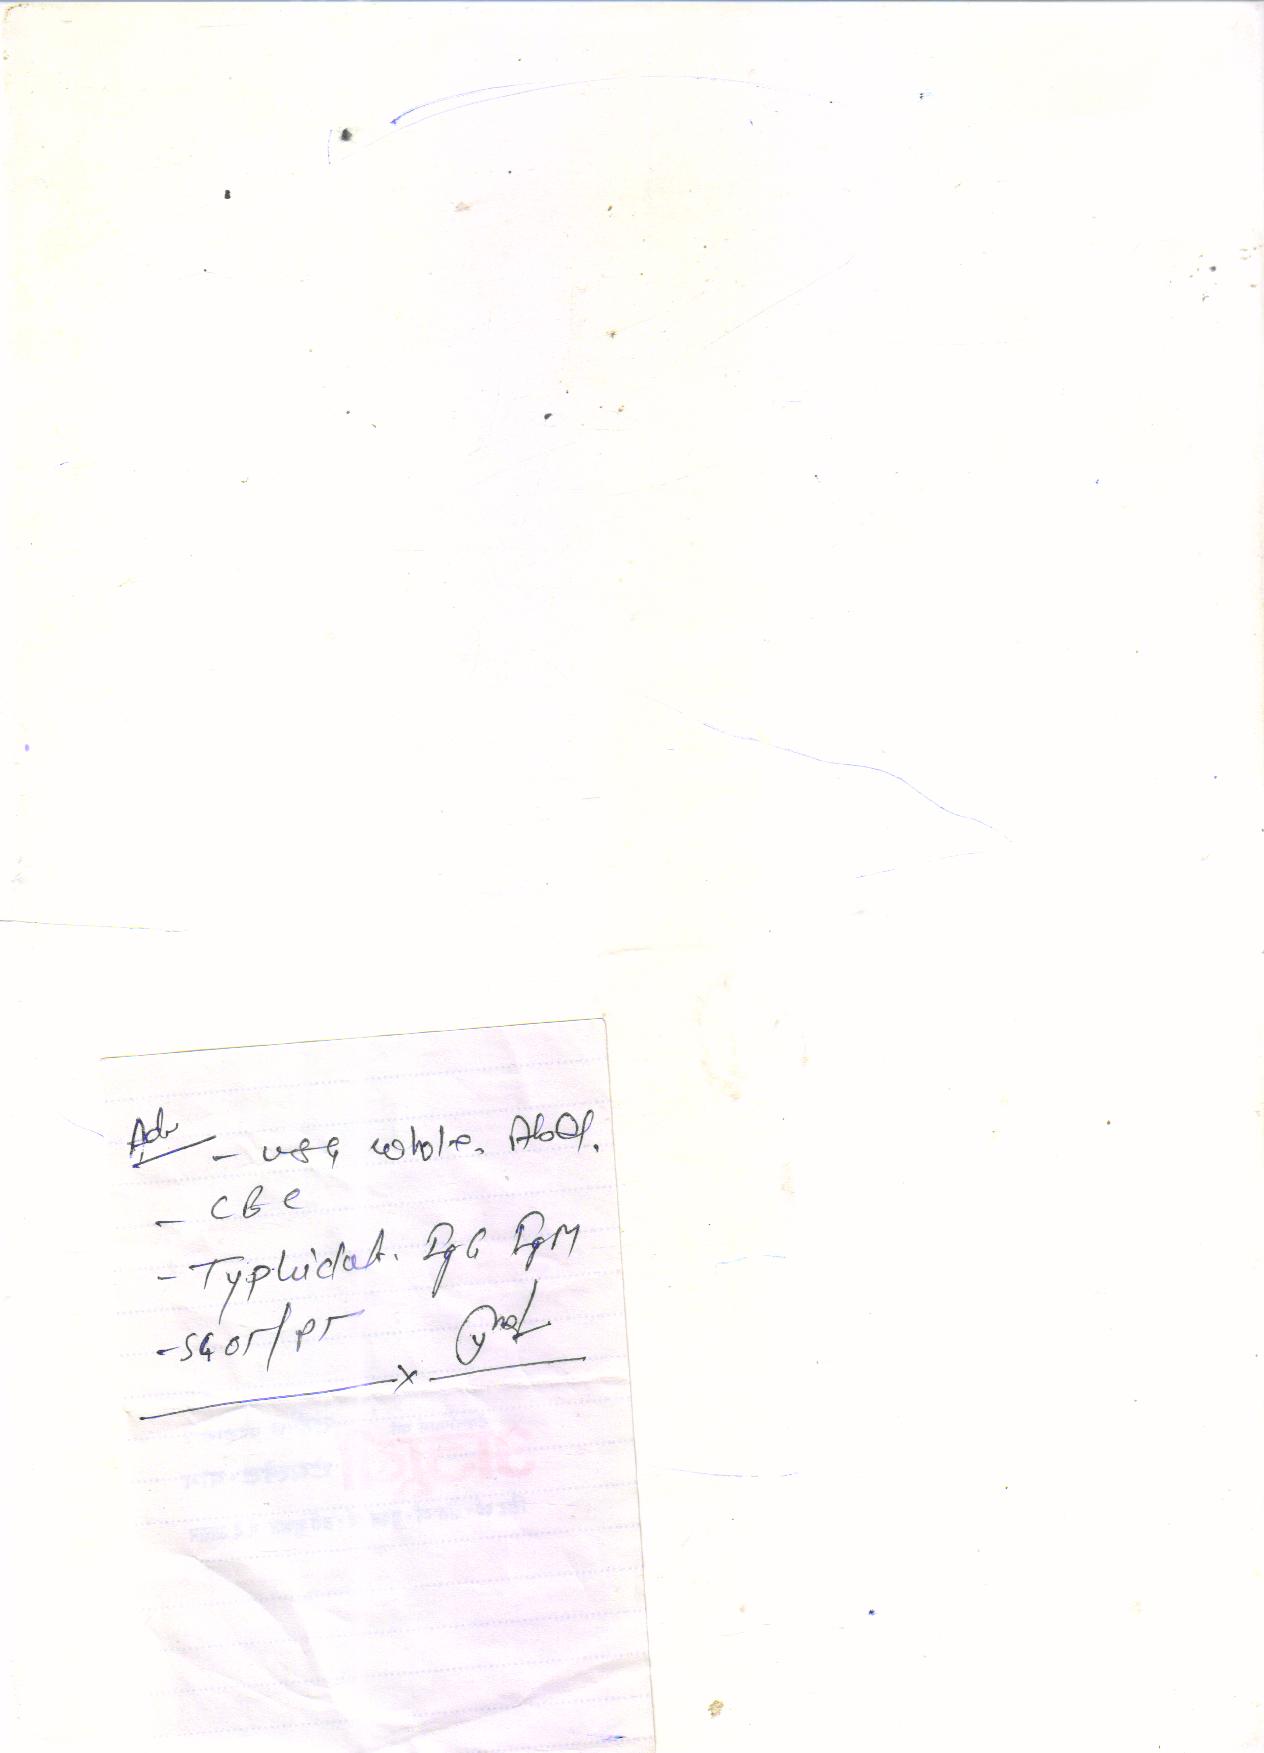 Adv
- USG whole Abd.
- CBC
- Typhidot. IgG IgM
- SGOT/PT